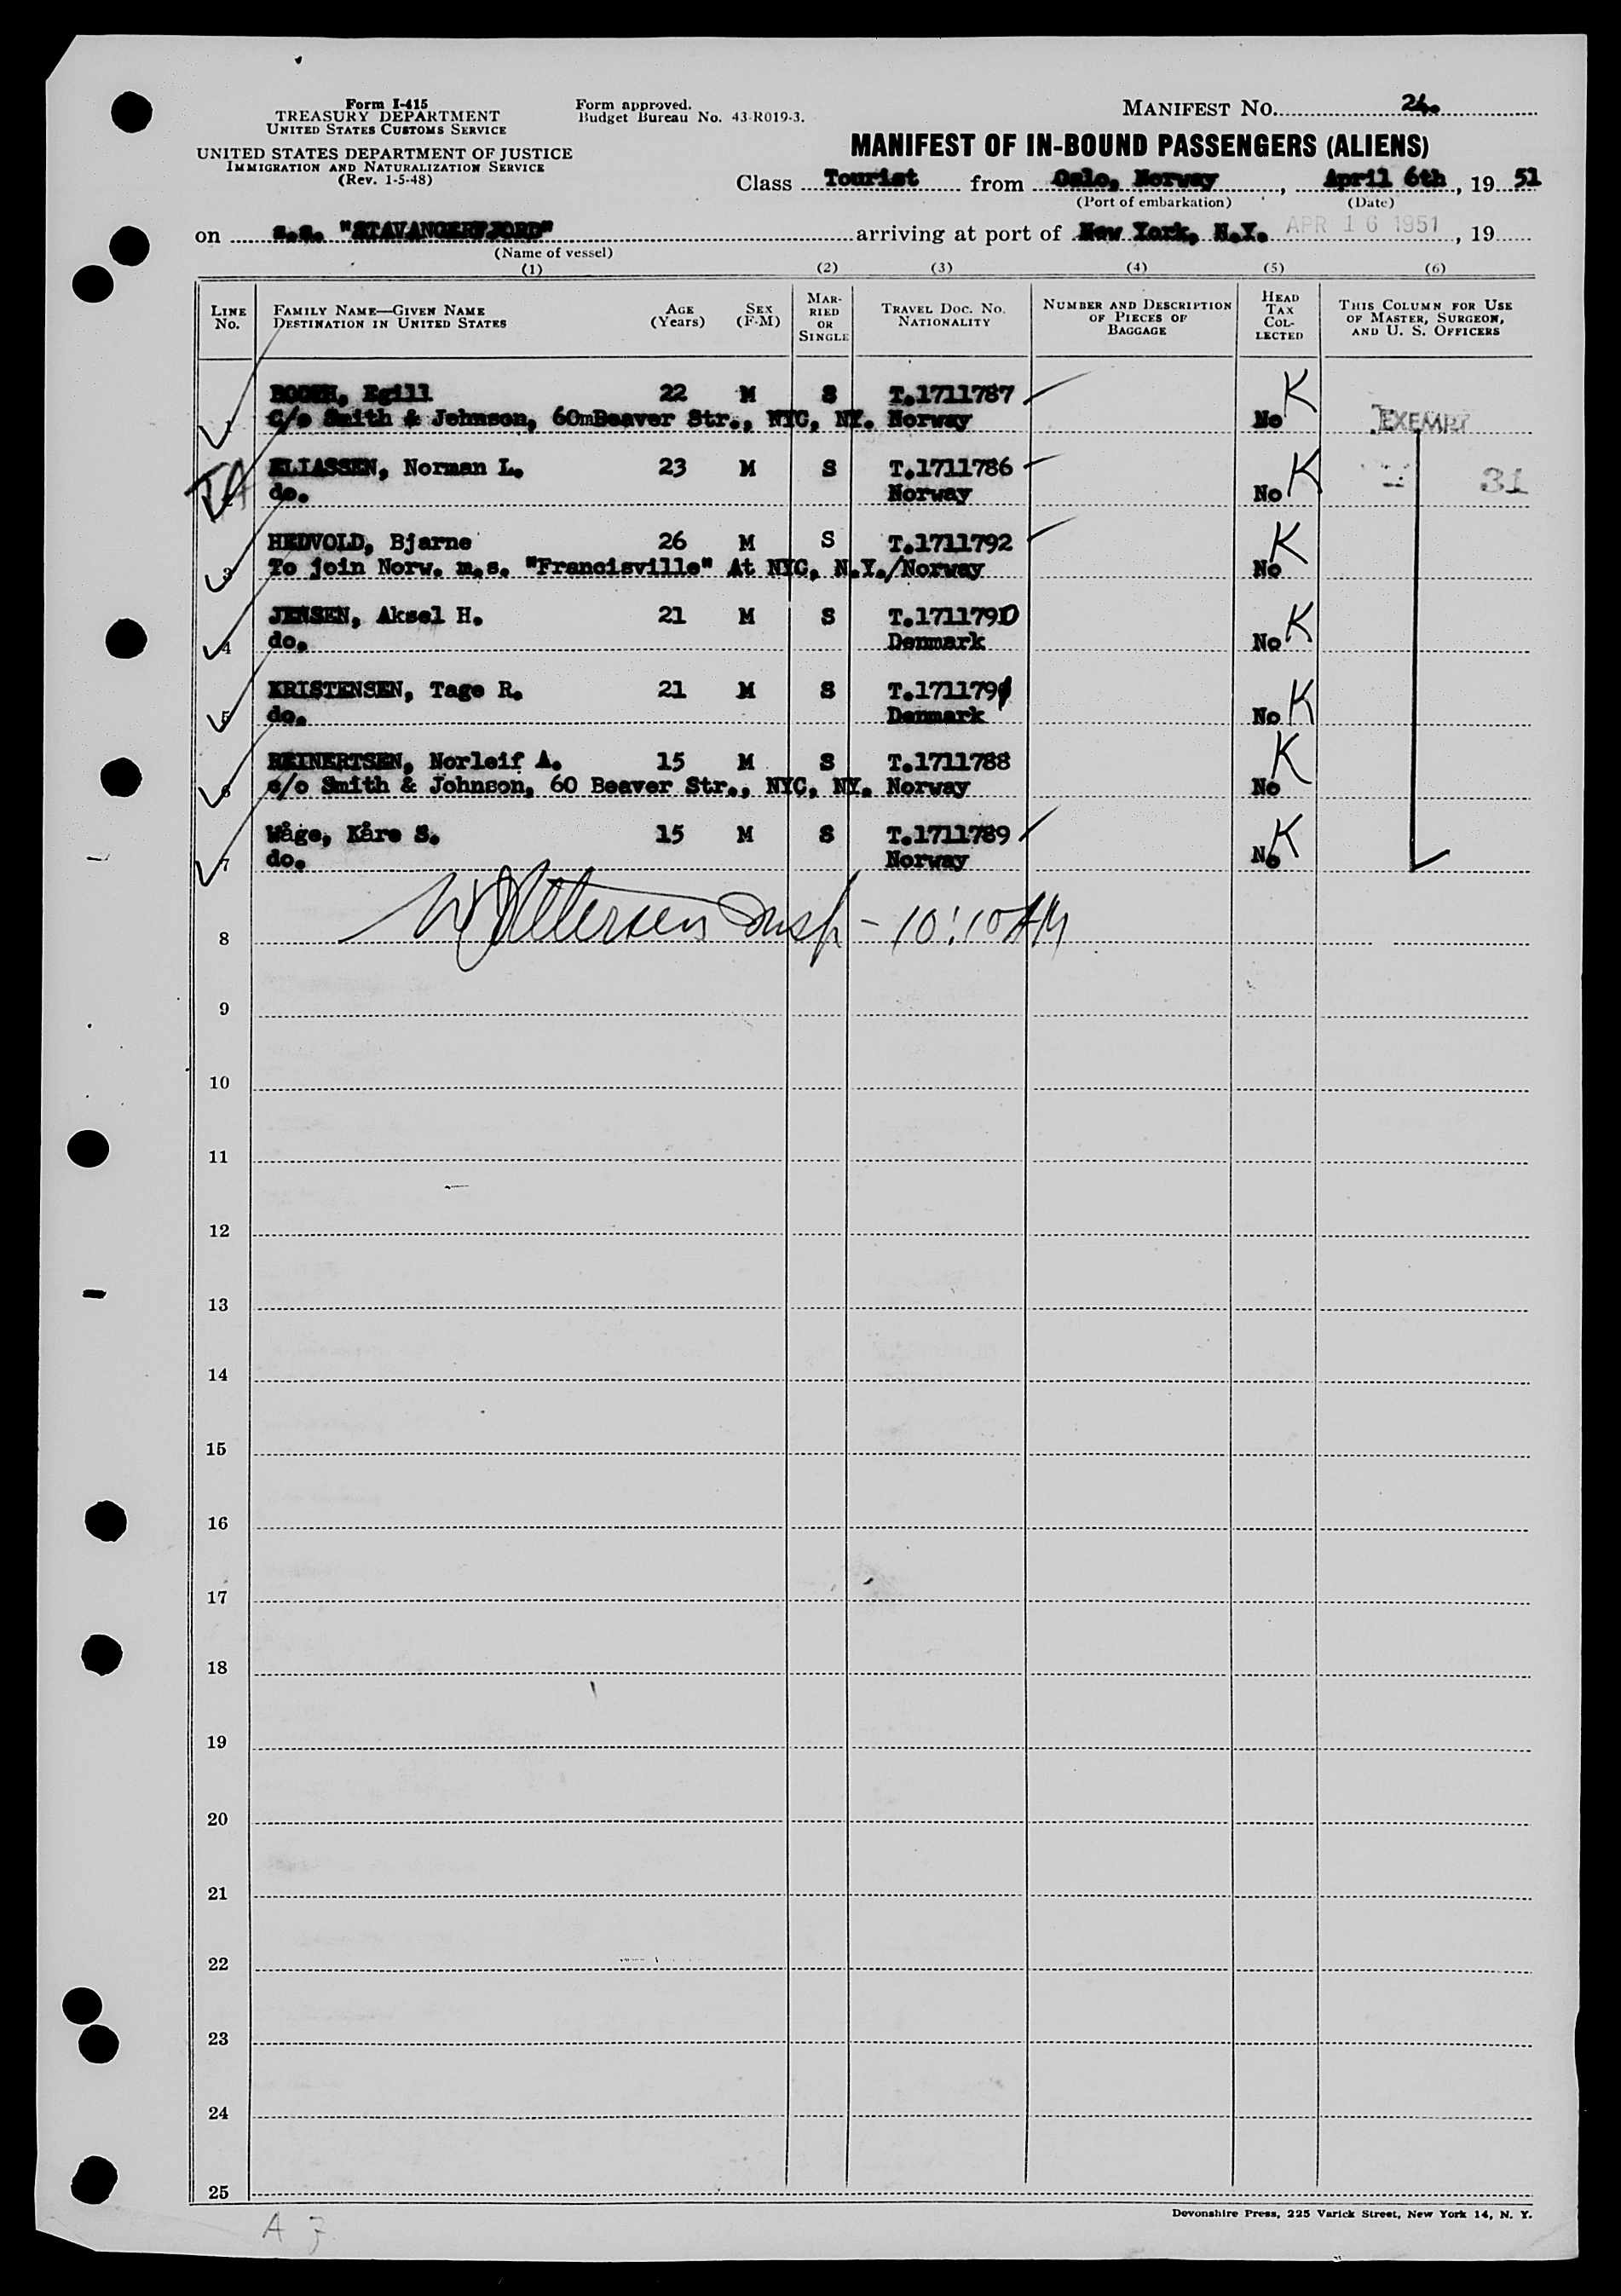 Form I-415
TREASURY DEPARTMENT
UNITED STATES CUSTOMS SERVICE
UNITED STATES DEPARTMENT OF JUSTICE
IMMIGRATION AND NATURALIZATION SERVICE
(Rev. 1-5-48)
Form approved.
Budget Bureau No. 43-R019-3.
MANIFEST NO. 24.
MANIFEST OF IN-BOUND PASSENGERS (ALIENS)
Class Tourist from Oslo, Norway, April 6th, 19 51
(Port of embarkation) (Date)
on s.s. "STAVANGERFJORD" arriving at port of New York, N.Y. APR 16 1951, 19
(Name of vessel)
(1) (2) (3) (4) (5) (6)
LINE No. FAMILY NAME—GIVEN NAME DESTINATION IN UNITED STATES AGE (Years) SEX (F-M) MARRIED OR SINGLE TRAVEL DOC. NO. NATIONALITY NUMBER AND DESCRIPTION OF PIECES OF BAGGAGE HEAD TAX COLLECTED THIS COLUMN FOR USE OF MASTER, SURGEON, AND U. S. OFFICERS
Egill 22 M S T.1711787 K
1 C/o Smith & Johnson, 60mBeaver Str., NYC, NY. Norway No EXEMPT
ELIASSEN, Norman L. 23 M S T.1711786 K 31
2 do. Norway No
HEDVOLD, Bjarne 26 M S T.1711792 K
3 To join Norw. m.s. "Francisville" At NYC, N.Y./Norway No
JENSEN, Aksel H. 21 M S T.1711790 K
4 do. Denmark No
KRISTENSEN, Tage R. 21 M S T.1711791 K
5 do. Denmark No
REINERTSEN, Norleif A. 15 M S T.1711788 K
6 c/o Smith & Johnson, 60 Beaver Str., NYC, NY. Norway No
Wåge, Kåre S. 15 M S T.1711789 K
7 do. Norway No
Insp - 10:10 AM
8
9
10
11
12
13
14
15
16
17
18
19
20
21
22
23
24
25
Devonshire Press, 225 Varick Street, New York 14, N. Y.